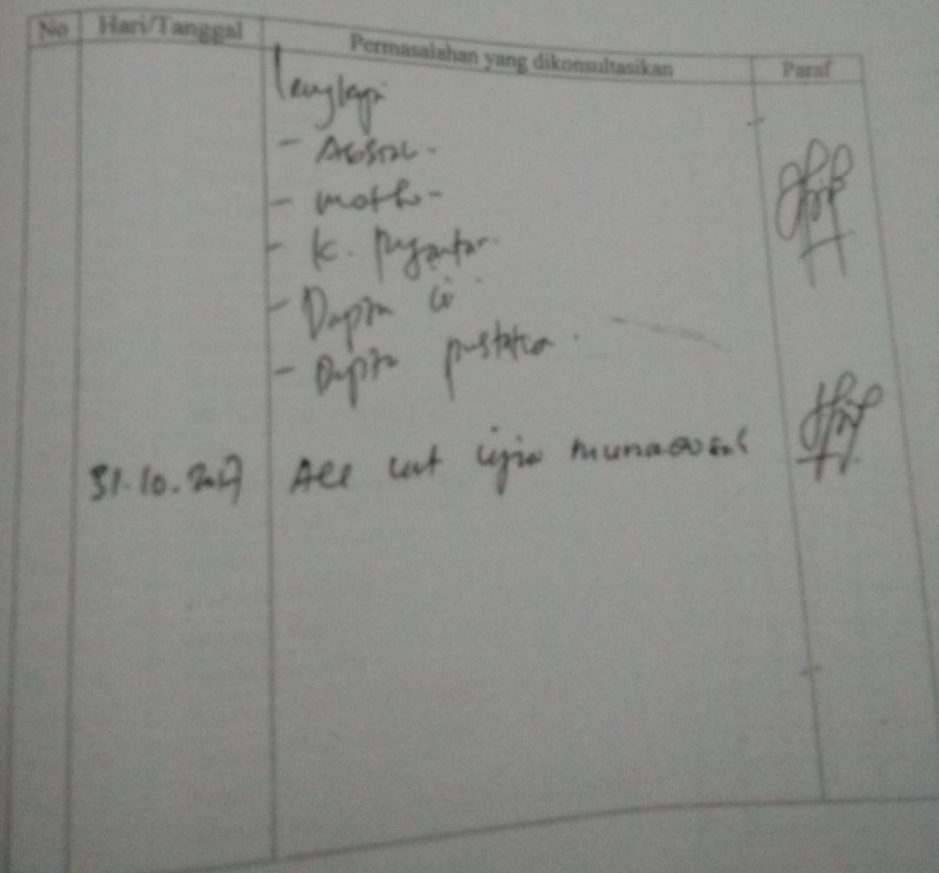 No Hari/Tanggal Permasalahan yang dikonsultasikan Paraf
Lengkapi
- Abstrak -
- motto -
- K. Pengantar.
- Daptar isi
- Daptar pustaka .
31.10.2017 Acc ut ujia munaqosah